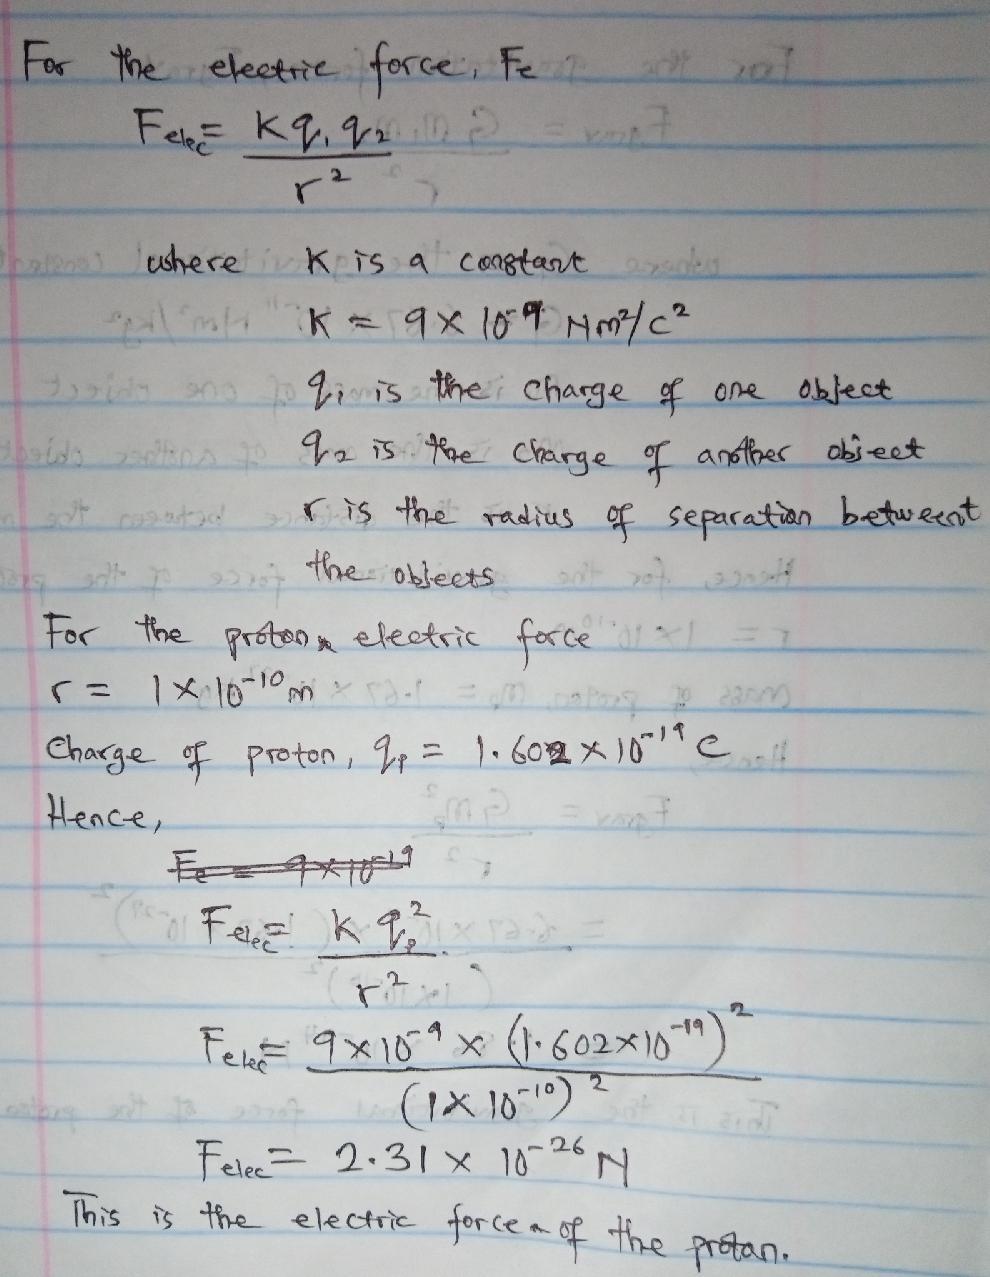 For the electric force, Fe
Felec = K q₁ q₂
r²
where K is a constant
K = 9 × 10⁻⁹ Nm²/C²
q₁ is the charge of one object
q₂ is the charge of another object
r is the radius of separation betweent
the objects
For the proton electric force
r = 1 × 10⁻¹⁰ m
Charge of proton, qₚ = 1.602 × 10⁻¹⁹ C
Hence,
Fe = 9 × 10⁻¹⁹
Felec = K qₚ²
r²
Felec = 9 × 10⁻⁹ × (1.602 × 10⁻¹⁹)²
(1 × 10⁻¹⁰)²
Felec = 2.31 × 10⁻²⁶ N
This is the electric force of the protan.